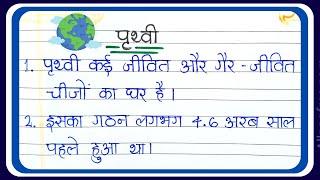 पृथ्वी
1. पृथ्वी कई जीवित और गैर-जीवित
चीजों का घर है।
2. इसका गठन लगभग 4.6 अरब साल
पहले हुआ था।